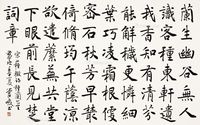 蘭生幽谷無人
識客種東軒遺
我香知有清芬
能解穢更憐細
葉巧凌霜根便
密石秋芳早叢
倚修筠午蔭涼
欲遺蘼蕪共堂
下眼前長見楚
詞章